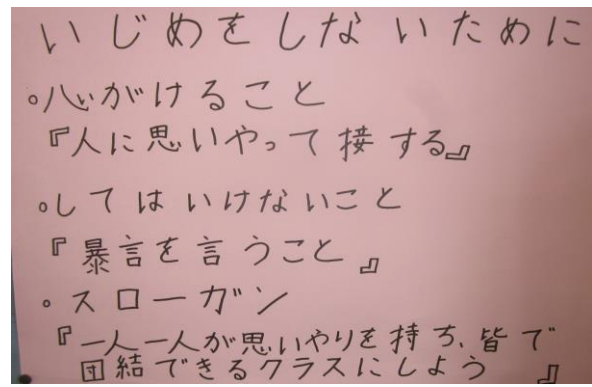 いじめをしないために
。心がけること
『人に思いやって接する』
。してはいけないこと
『暴言を言うこと』
。スローガン
『一人一人が思いやりを持ち、皆で
団結できるクラスにしよう 』